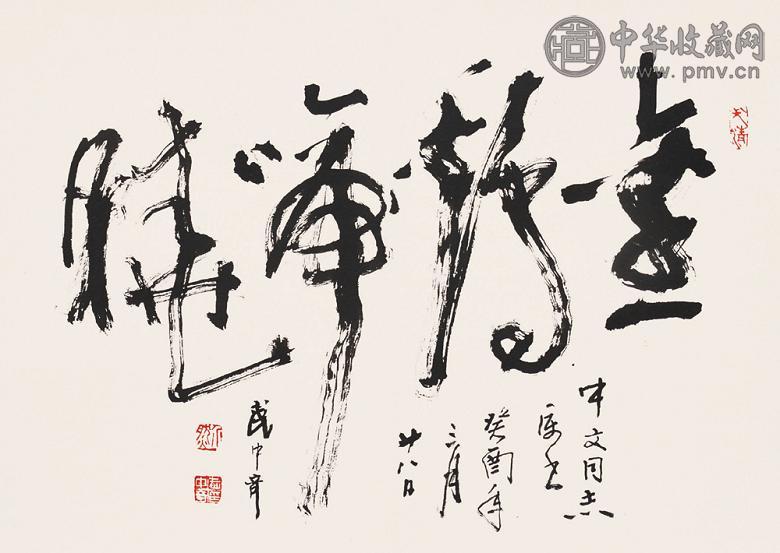 中华收藏网
www.pmv.cn
金鷄啼曉
中文同志
癸酉年
三月
廿八日
武中奇